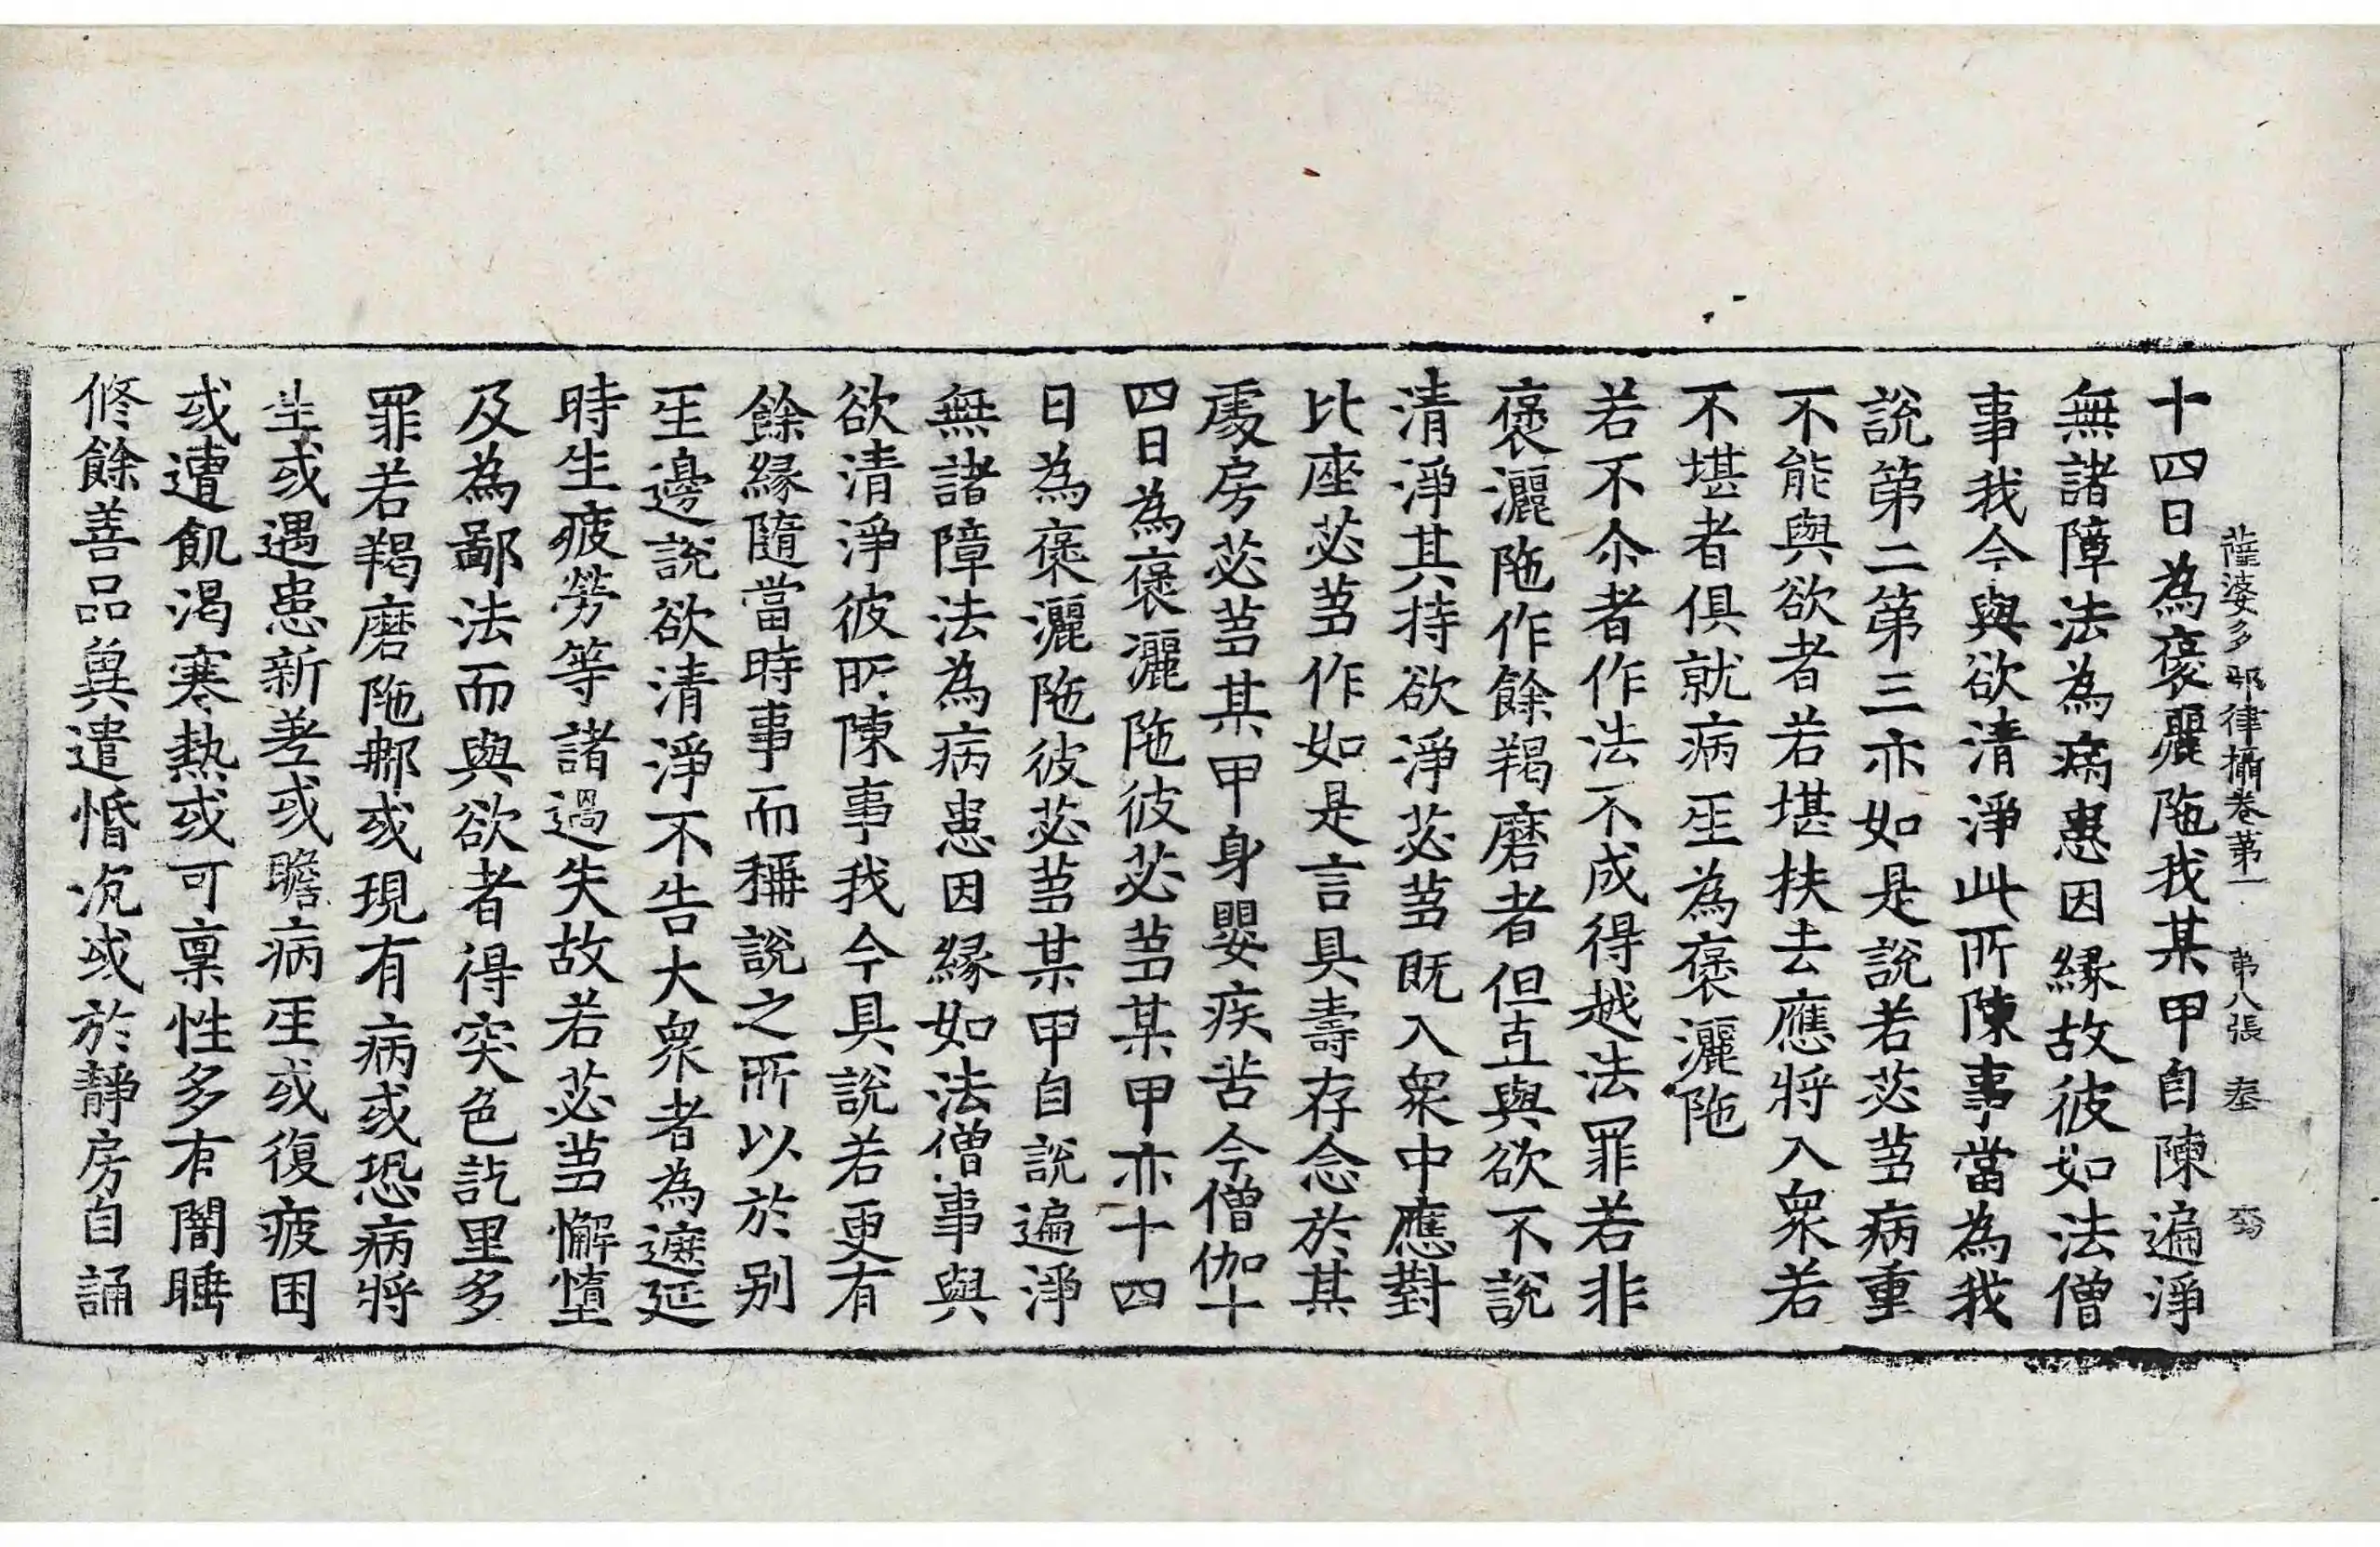 薩婆多部律攝卷第一 第八張 奉
十四日為褒灑陁我某甲自陳遍淨
無諸障法為病患因緣故彼如法僧
事我今與欲清淨此所陳事當為我
說第二第三亦如是說若苾芻病重
不能與欲者若堪扶去應將入衆若
不堪者俱就病𤯝為褒灑陁
若不尒者作法不成得越法罪若非
褒灑陁作餘羯磨者但直與欲不說
清淨其持欲淨苾芻既入衆中應對
比座苾芻作如是言具壽存念於某
處房苾芻某甲身嬰疾苦今僧伽十
四日為褒灑陁彼苾芻某甲亦十四
日為褒灑陁彼苾芻某甲自說遍淨
無諸障法為病患因緣如法僧事與
欲清淨彼所陳事我今具說若更有
餘緣隨當時事而稱說之所以於別
𤯝邊說欲清淨不告大衆者為遮延
時生疲勞等諸過失故若苾芻懈墮
及為鄙法而與欲者得突色訖里多
罪若羯磨陁那或現有病或恐病將
生或遇患新差或瞻病𤯝或復疲困
或遭飢渴寒熱或可稟性多有闇睡
修餘善品兾遣惛沉或於靜房自誦